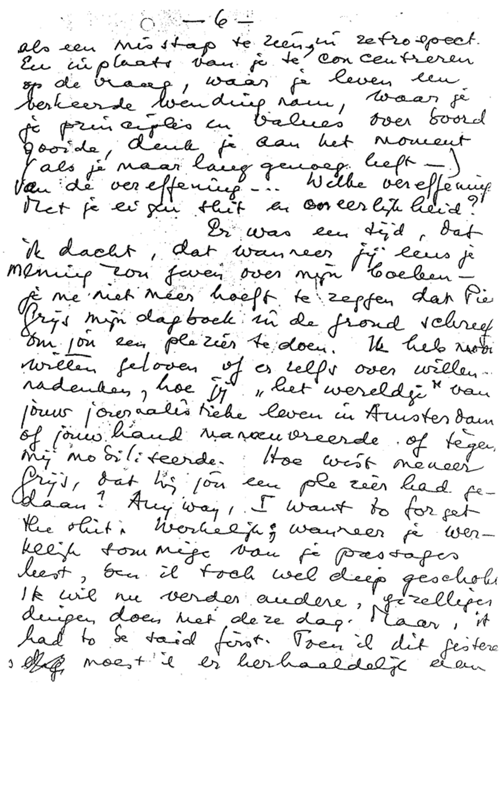 — 6 —
als een misstap te zien, in retrospect.
En inplaats van je te concentreren
op de vraag, waar je leven een
verkeerde wending nam, waar je
je principles en values over boord
gooide, denk je aan het moment
(als je maar lang genoeg leeft —)
van de vereffening... Welke vereffening
Met je eigen shit en oneerlijkheid?
Er was een tijd, dat
ik dacht, dat wanneer jij eens je
mening zou geven over mijn boeken —
je me niet meer hoeft te zeggen dat Pie
Grijs mijn dagboek in de grond schreef
om jou een plezier te doen. Ik heb nooi
willen geloven of er zelfs over willen
nadenken, hoe jij "het wereldje" van
jouw journalistieke leven in Amsterdam
of jouw hand manoeuvreerde of tegen
mij mobiliseerde. Hoe wist meneer
Grijs, dat hij jou een plezier had ge-
daan? Anyway, I want to forget
the shit. Werkelijk; wanneer je wer-
kelijk sommige van je passages
leest, ben ik toch wel diep geschokt
Ik wil nu verder andere, gezelliger
dingen doen met deze dag. Maar, it
had to be said first. Toen ik dit gistere
moest ik er herhaaldelijk even